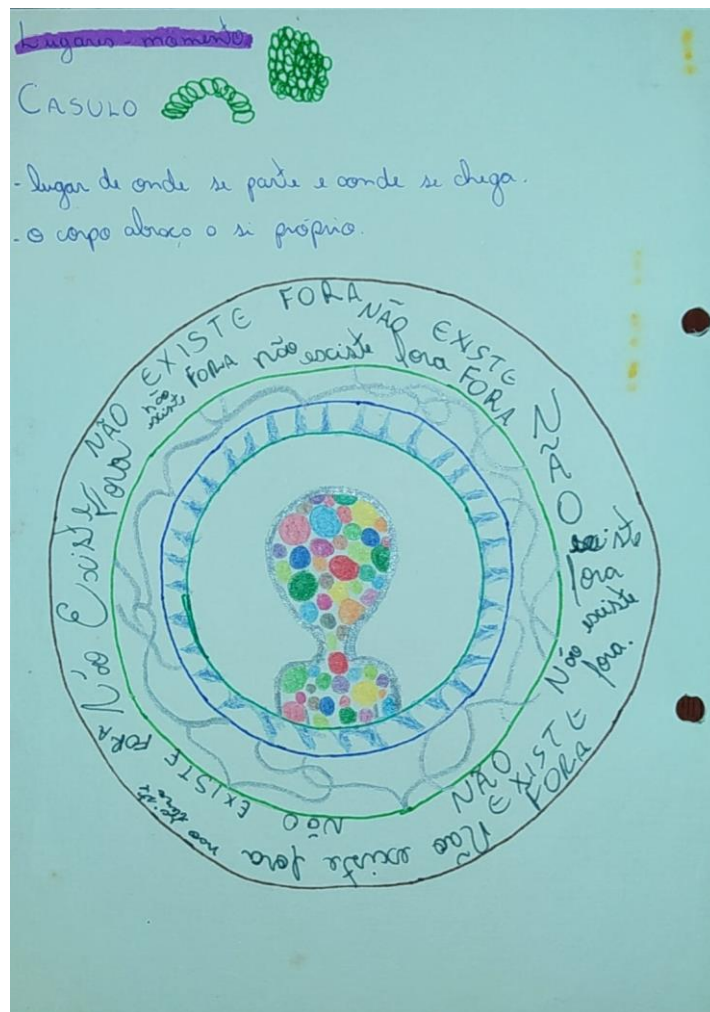 Lugares-momento
CASULO
- lugar de onde se parte e aonde se chega.
- o corpo abraço a si próprio.
NÃO EXISTE FORA NÃO EXISTE FORA
não existe FORA não existe fora
NÃO existe fora
Não existe fora.
NÃO EXISTE FORA
Não existe fora
NÃO EXISTE FORA
Não Existe fora